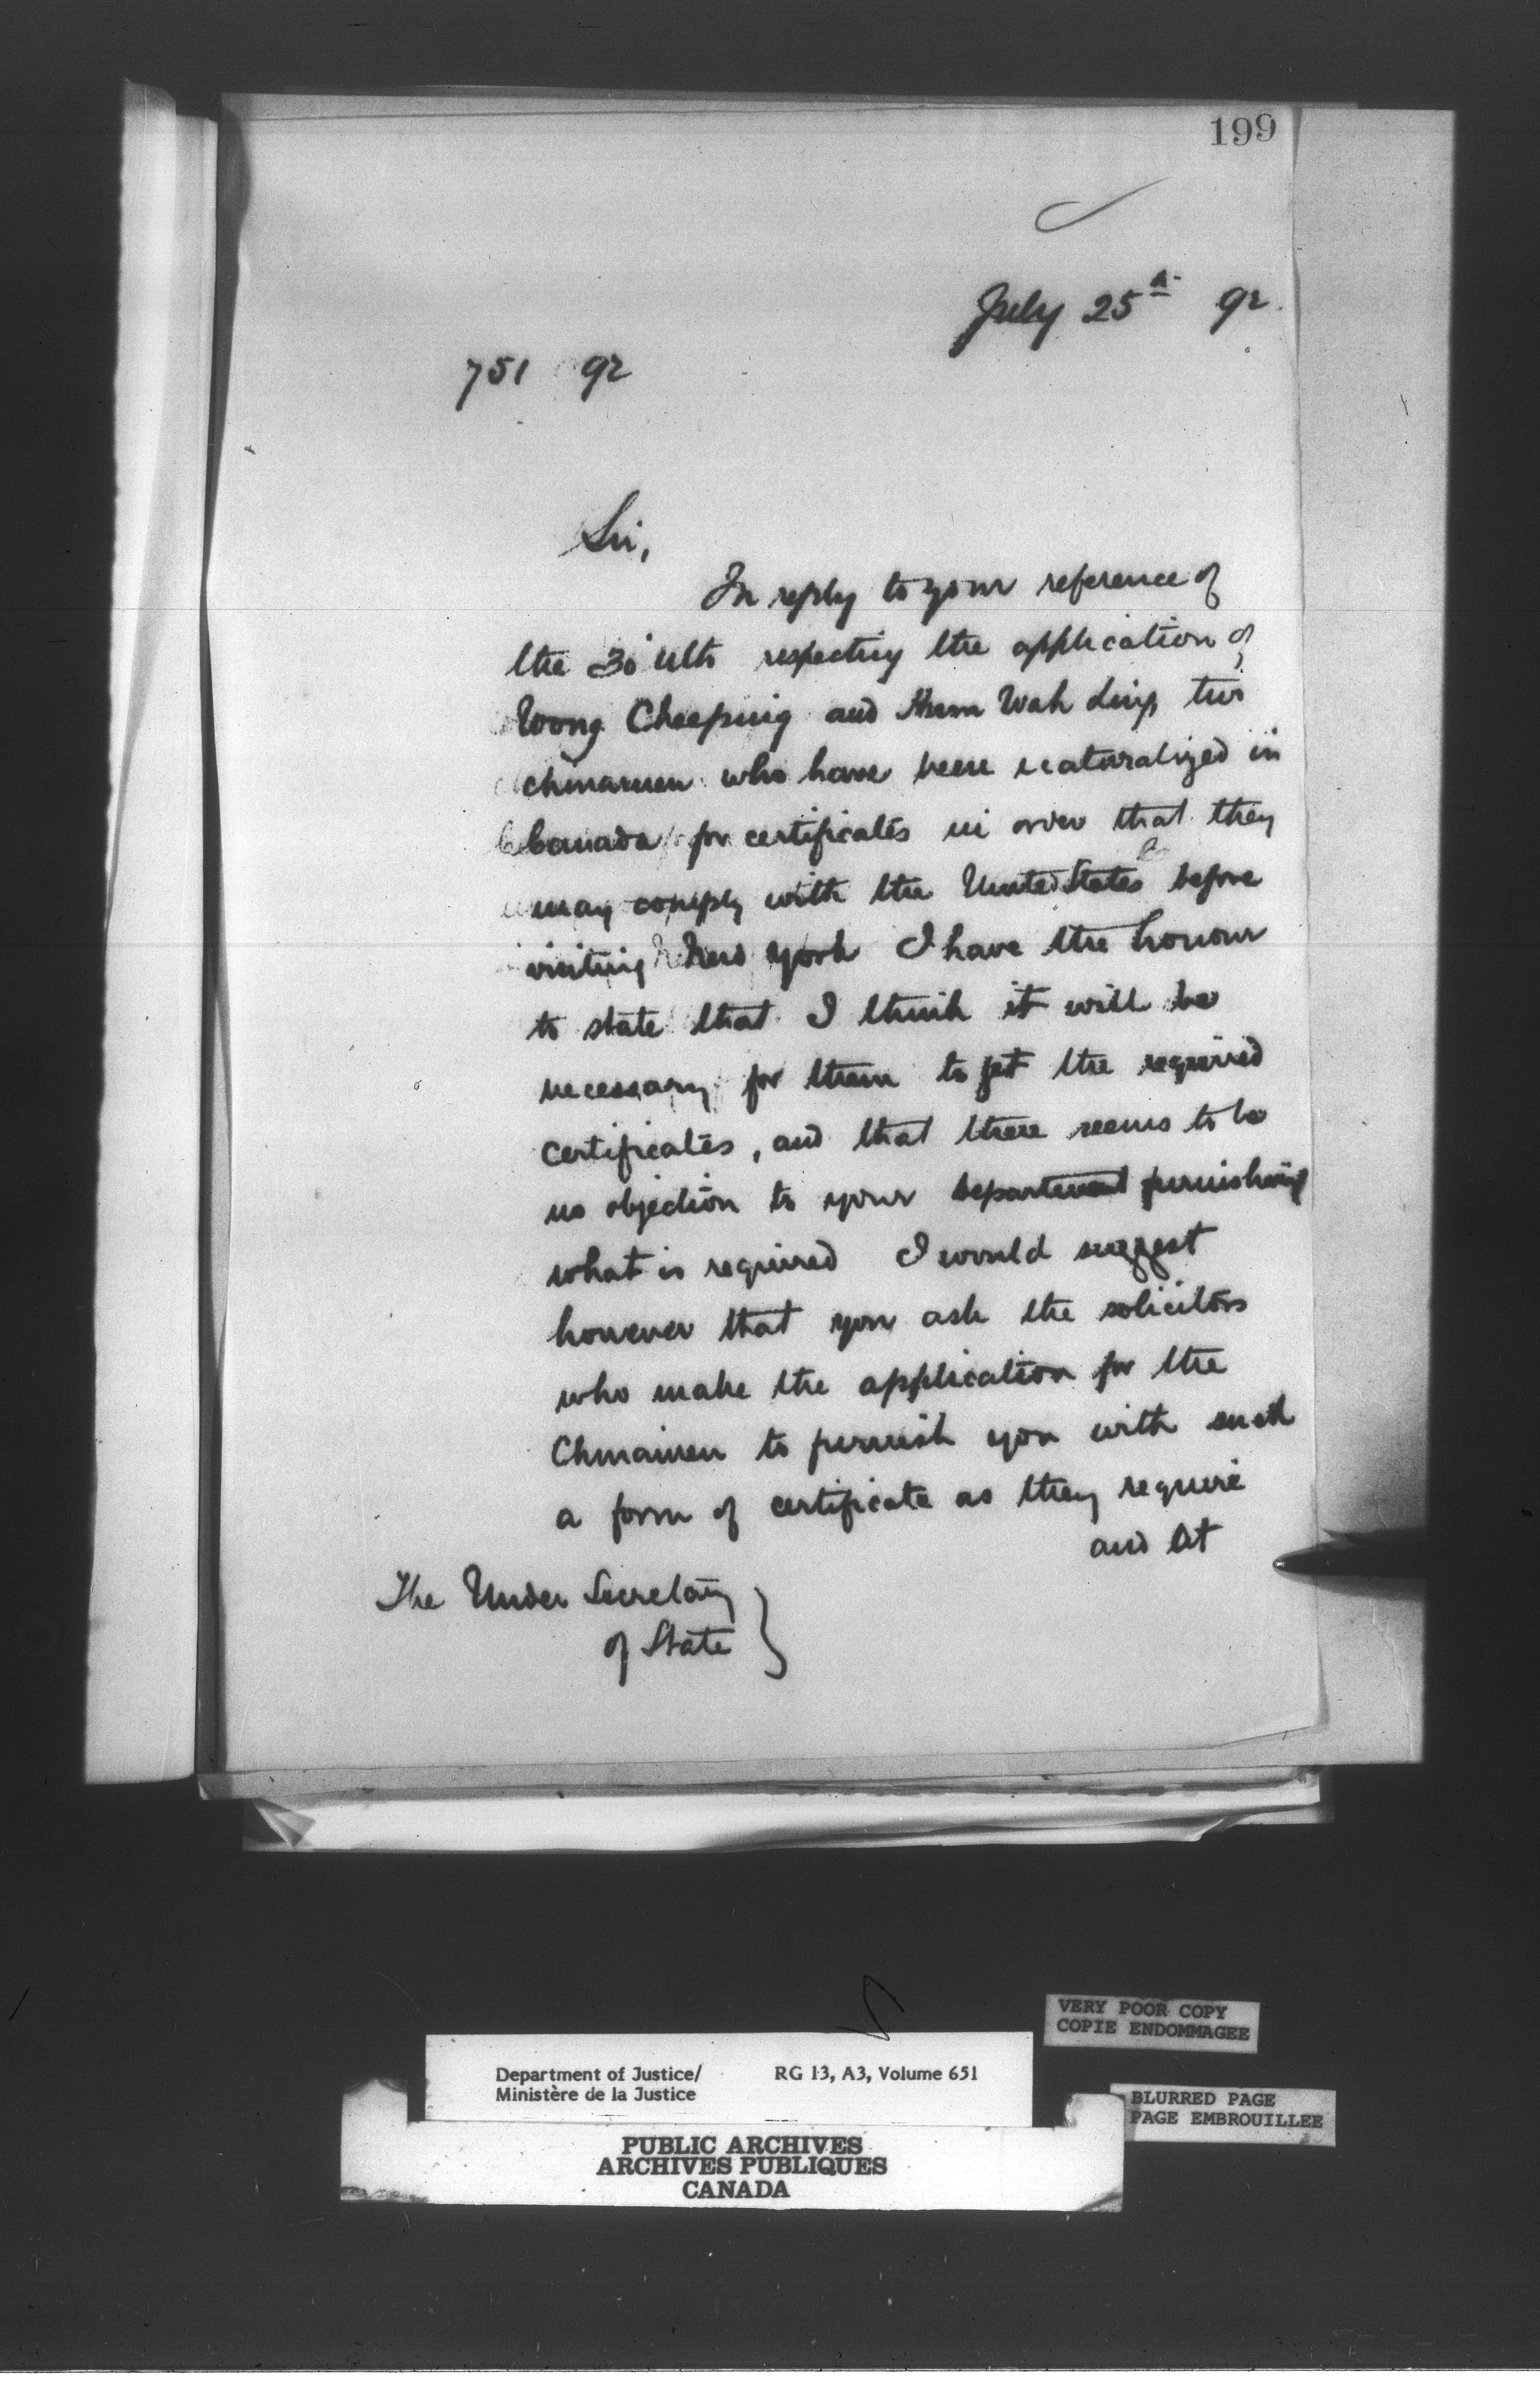 199
July 25th 92.
751 92
Sir,
In reply to your reference of
the 30 ulto respecting the application of
Wong Cheeping and Wah two
chinamen who have been naturalized in
Canada for certificates in order that they
may comply with the United States before
visiting New York I have the honour
to state that I think it will be
necessary for them to get the required
certificates, and that there seems to be
no objection to your Department furnishing
what is required I would suggest
however that you ask the solicitors
who make the application for the
Chinamen to furnish you with such
a form of certificate as they require
and at
The Under Secretary
of State
VERY POOR COPY
COPIE ENDOMMAGEE
Department of Justice/ RG 13, A3, Volume 651
Ministère de la Justice
BLURRED PAGE
PAGE EMBROUILLEE
PUBLIC ARCHIVES
ARCHIVES PUBLIQUES
CANADA